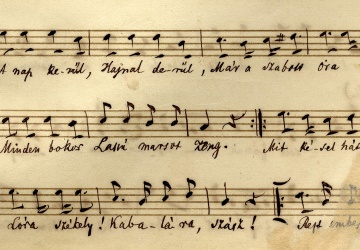 nap ke-rűl, Hajnal de-rűl, Már a szabott óra
Minden bokor Lassú marsot zeng. Mit ké-sel hát
Lóra székely! Kaba-lá-ra, szász! Rejt